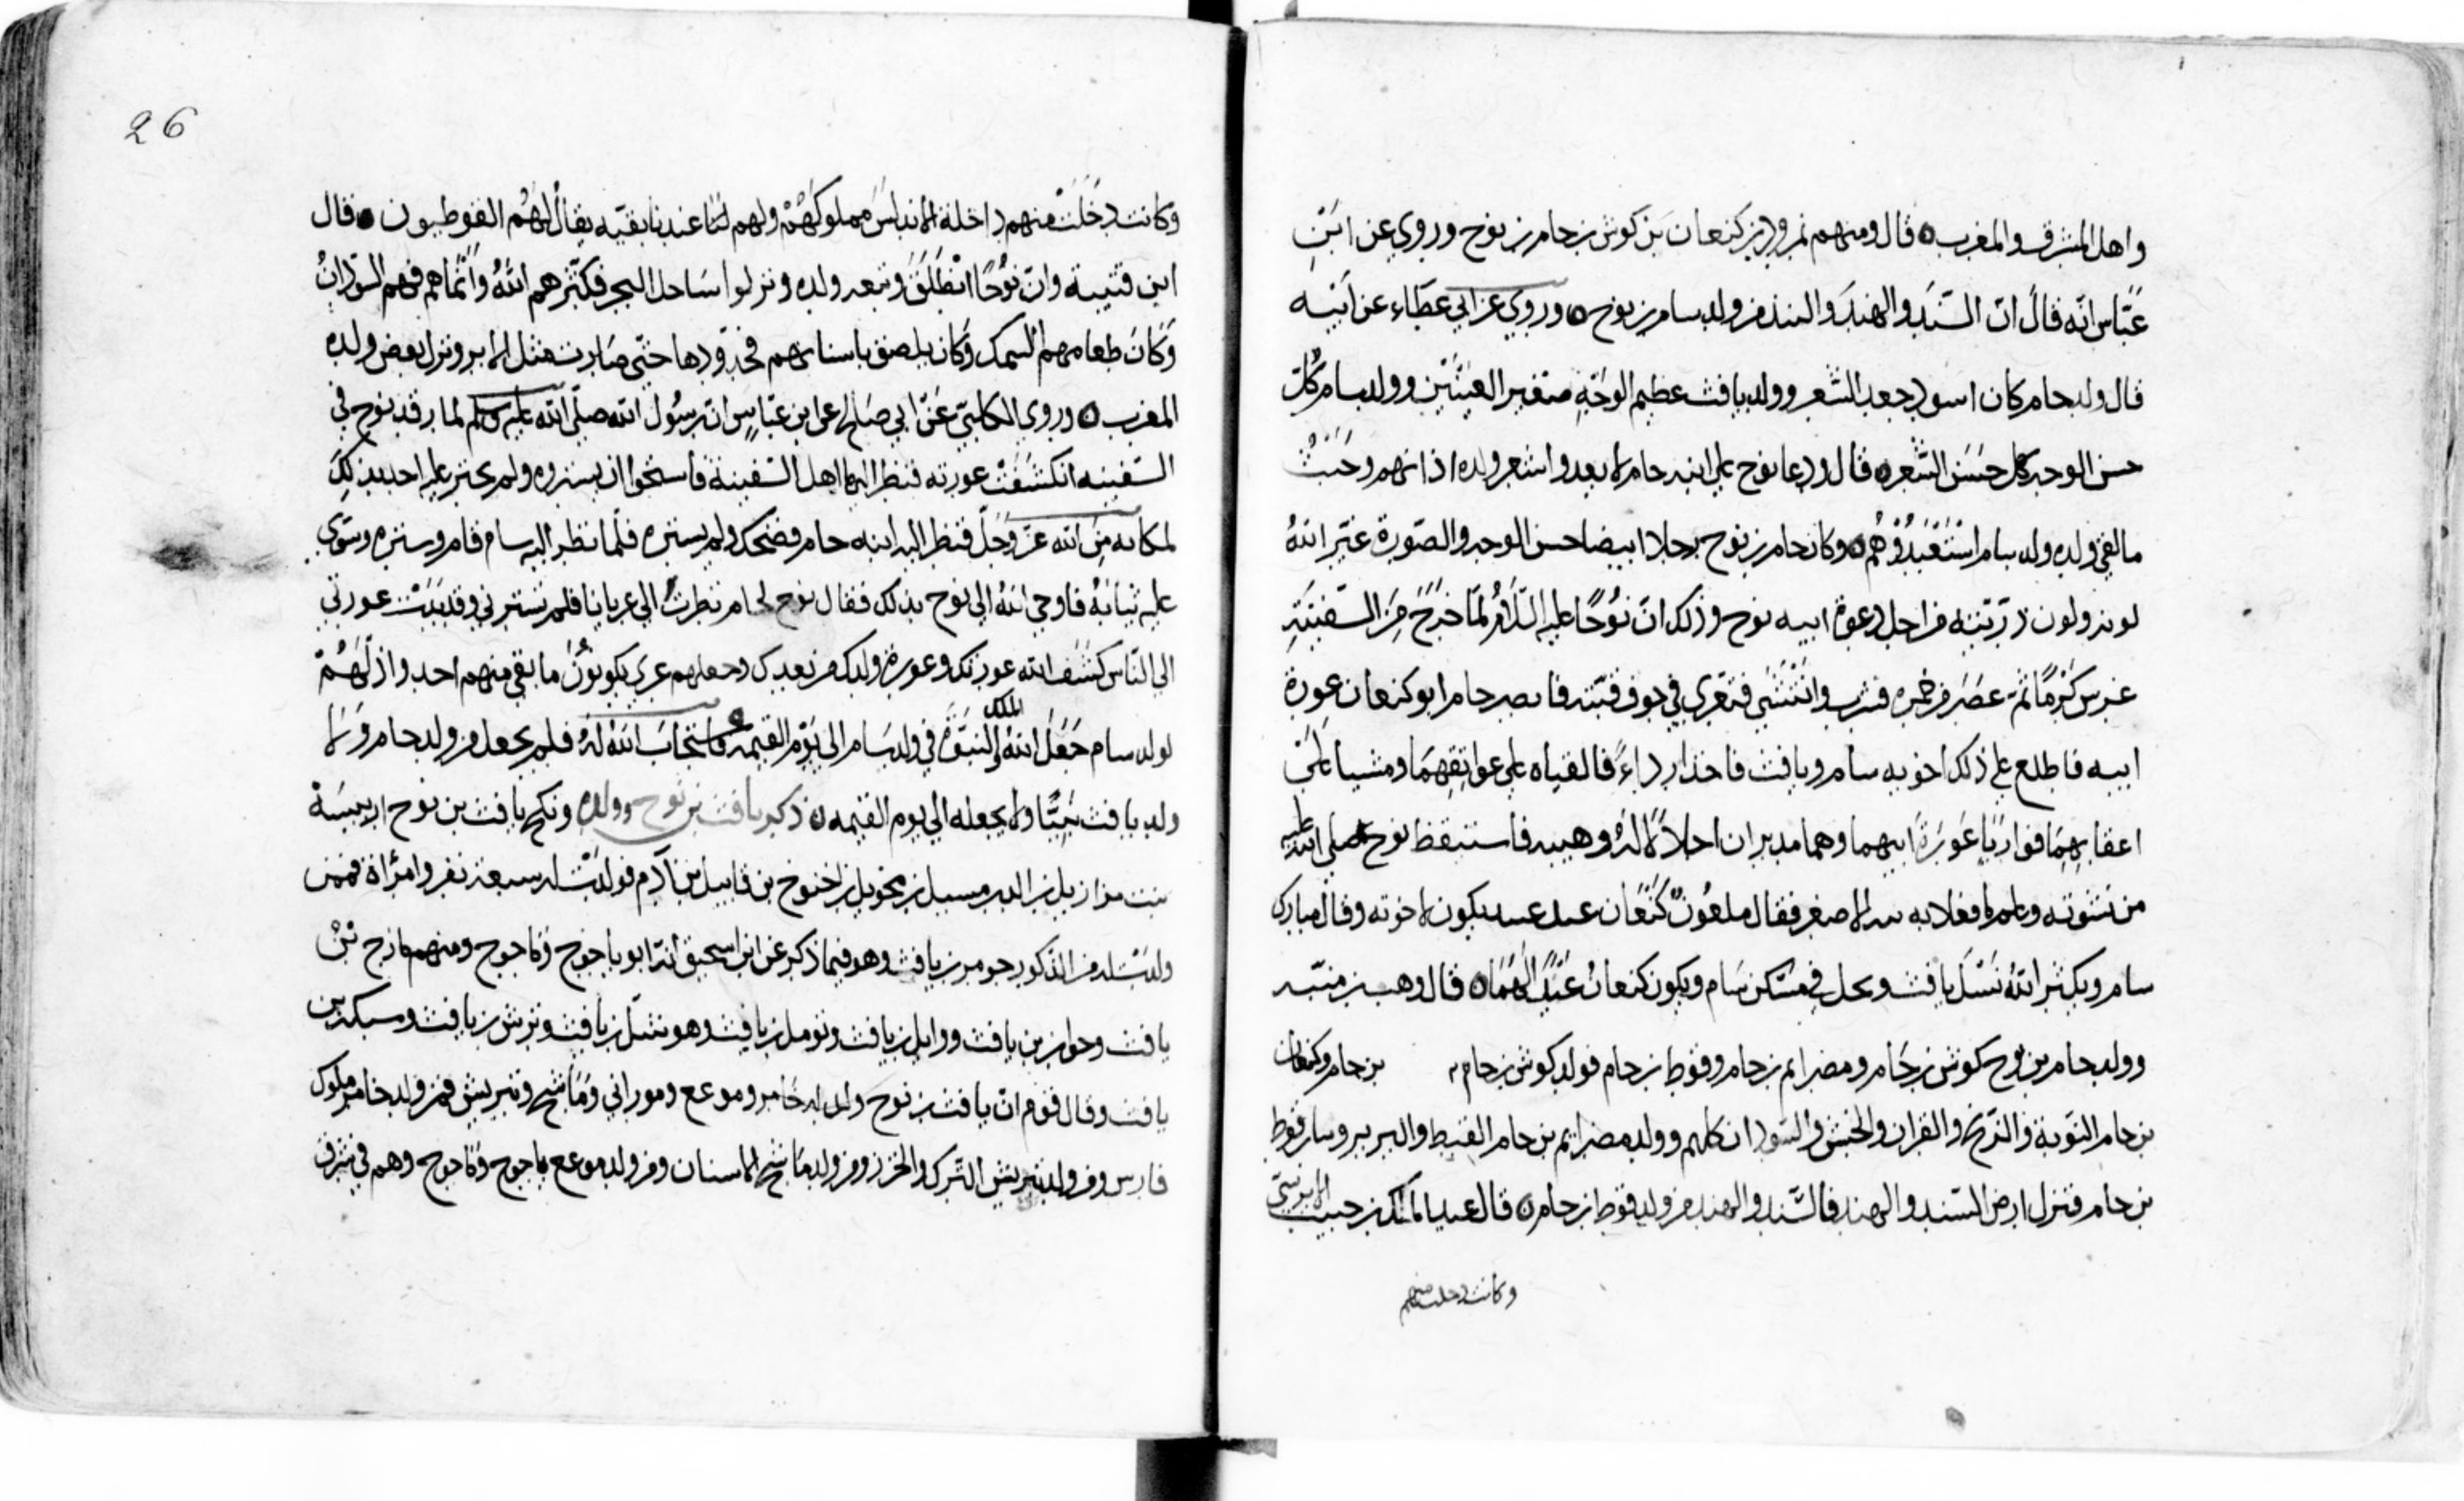 واهل المشرق والمغرب ٥ قال ومنهم نمرود بن كنعان بن كوش بن حام بن نوح وروي عن ابن
عباس انه قال ان السند والهند والبند من ولد سام بن نوح ٥ وروي عن ابي عطاء عن ابيه
قال ولد حام كان اسود جعد الشعر وولد يافث عظيم الوجه صغير العينين وولد سام كل
حسن الوجه كل حسن الشعر ٥ قال ودعا نوح على ابنه حام لا يعدوا شعر ولده اذانهم وحيث
ما لقي ولده ولد سام استعبدوهم ٥ وكان حام بن نوح رجلا ابيضا حسن الوجه والصورة غير الله
لونه ولون ذريته من اجل دعوة ابيه نوح وذلك ان نوحا عليه السلام لما خرج من السفينة
غرس كرما ثم عصر من خمره فشرب وانتشي فتعري في جوف قبته فابصر حام ابو كنعان عورة
ابيه فاطلع على ذلك اخويه سام ويافث فاخذا رداء فالقياه على عواتقهما ومشيا على
اعقابهما فواريا عورة ابيهما وهما مدبران اجلالا له وهيبه فاستيقظ نوح صلى الله عليه
من نشوته وعلم ما فعل به الاصغر فقال ملعون كنعان عبد عبيد يكون لاخوته وقال مبارك
سام ويكثر الله نسل يافث ويحل في مسكن سام ويكون كنعان عبدا لهما ٥ قال وهب بن منبه
وولد حام بن نوح كوش بن حام ومصرايم بن حام وقوط بن حام فولد كوش بن حام بن حام وكنعان
بن حام النوبة والزنج والقران والحبش والسودان كلهم وولد مصرايم بن حام القبط والبربر وسار قوط
بن حام فنزل ارض السند والهند فالسند والهند من ولد قوط بن حام ٥ قال عبد الملك بن حبيب الاندلسي
وكانت دخلت منهم
26
وكانت دخلت منهم داخلة الاندلس مملوكهم ولهم لنا عندنا بقيه يقال لهم القوطيون ٥ قال
ابن قتيبة وان نوحا انطلق وتبعه ولده ونزلوا ساحل البحر فكثرهم الله وانماهم فهم السودان
وكان طعامهم السمك وكان يلصق باسنانهم فحددوها حتى صارت مثل الابر ونزل بعض ولده
المغرب ٥ وروي الكلبي عن ابي صالح عن ابن عباس ان رسول الله صلى الله عليه وسلم لما رقد نوح في
السفينه انكشفت عورته فنظر اليها اهل السفينة فاستحوا ان يستروه ولم يخبر عليه احد بذلك
لمكانه من الله عز وجل فنظر اليه ابنه حام فضحك ولم يستره فلما نظر اليه سام قام وستره وسوى
عليه ثيابه فاوحى الله الى نوح بذلك فقال نوح لحام نظرت الى عريانا فلم تسترني وقد بدت عورتي
الى الناس كشف الله عورتك وعورة ولدك من بعدك وجعلهم عري يكونون ما بقي منهم احد واذلهم
لولد سام جعل الله الملك والنبوة في ولد سام الى يوم القيمه فاستجاب الله له فلم يجعل من ولد حام ولا
ولد يافث نبيا ولا يجعله الى يوم القيمه ٥ ذكر يافث بن نوح وولده ونكح يافث بن نوح اربسيسة
بنت مرازيل بن الدرمسيل بن محويل بن اخنوخ بن قابيل بن آدم فولدت له سبعة نفر وامرأة فممن
ولدت له من الذكور جومر بن يافث وهو فيما ذكر عن ابن اسحق انه ابو ياجوج وماجوج ومنهم مازج بن
يافث وحوان بن يافث ووايل بن يافث وتوبيل بن يافث وهوشل بن يافث وترش بن يافث وسبكه بن
يافث وقال قوم ان يافث بن نوح ولد له جامر وموعع وموراني وماشح وتيريش فمن ولد جامر ملوك
فارس ومن ولد تيريش الترك والخزر ومن ولد ماشح الاسنان ومن ولد موعع ياجوج وماجوج وهم في شرق